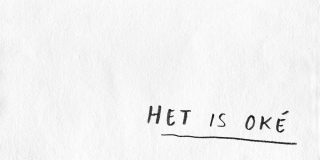 HET IS OKÉ